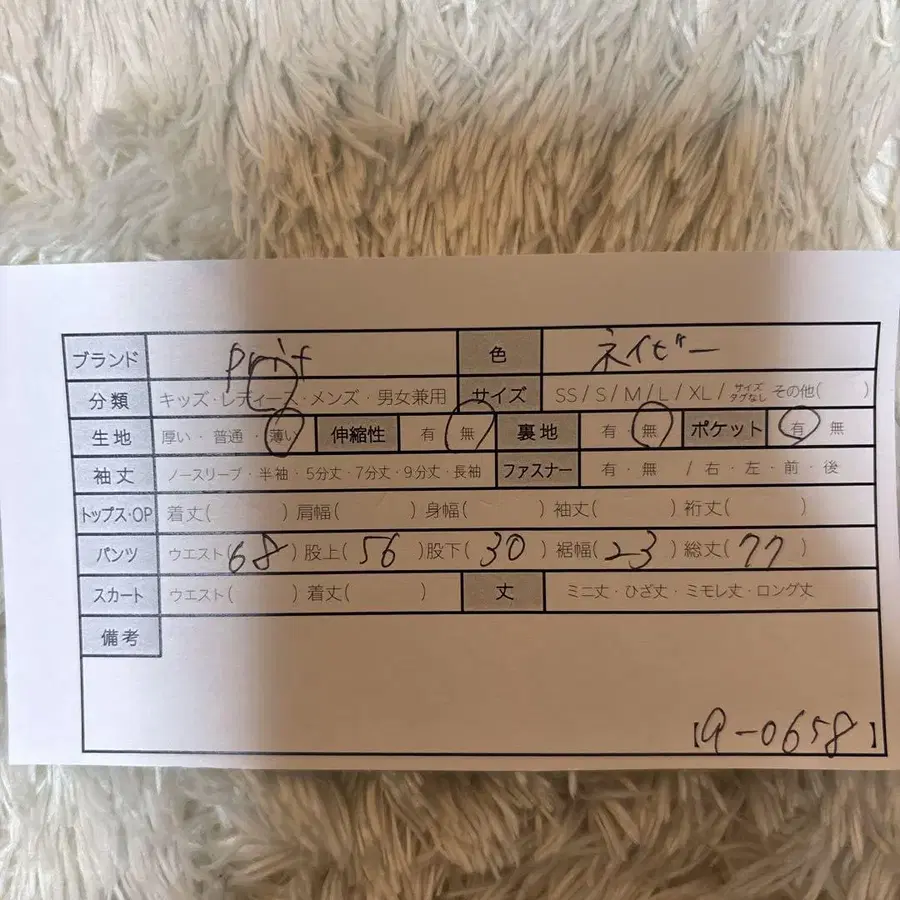 ブランド prit 色 ネイビー
分類 キッズ・レディース・メンズ・男女兼用 サイズ SS / S / M / L / XL / サイズタグなし その他( )
生地 厚い・普通・薄い 伸縮性 有・無 裏地 有・無 ポケット 有・無
袖丈 ノースリーブ・半袖・5分丈・7分丈・9分丈・長袖 ファスナー 有・無 / 右・左・前・後
トップス・OP 着丈( ) 肩幅( ) 身幅( ) 袖丈( ) 裄丈( )
パンツ ウエスト(68) 股上(56) 股下(30) 裾幅(23) 総丈(77)
スカート ウエスト( ) 着丈( ) 丈 ミニ丈・ひざ丈・ミモレ丈・ロング丈
備考
【9-0658】